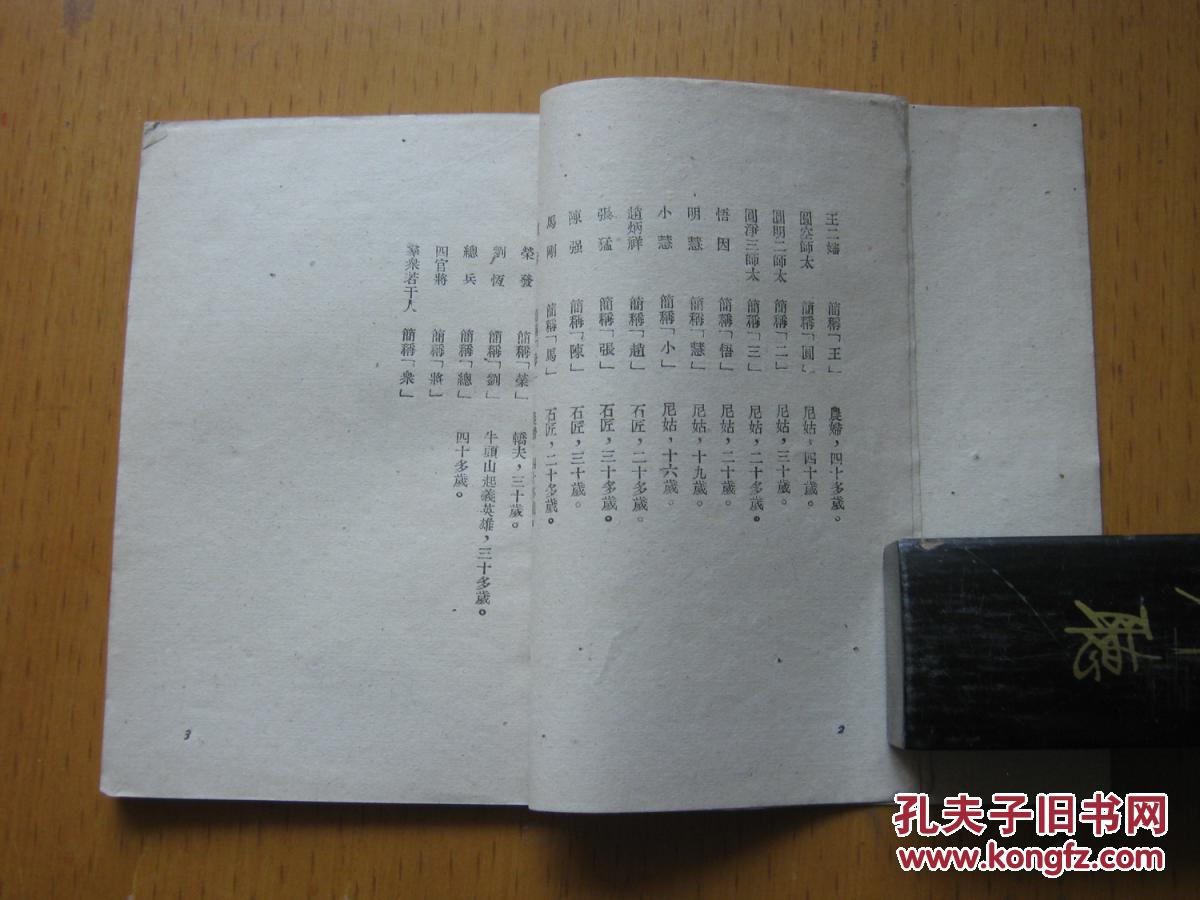 王二嬸 簡稱「王」 農婦，四十多歲。
圓空師太 簡稱「圓」 尼姑，四十歲。
圓明二師太 簡稱「二」 尼姑，三十歲。
圓淨三師太 簡稱「三」 尼姑，二十多歲。
悟因 簡稱「悟」 尼姑，二十歲。
明慧 簡稱「慧」 尼姑，十九歲。
小慧 簡稱「小」 尼姑，十六歲。
趙炳祥 簡稱「趙」 石匠，二十多歲。
張猛 簡稱「張」 石匠，三十多歲。
陳强 簡稱「陳」 石匠，三十歲。
馬剛 簡稱「馬」 石匠，二十多歲。
2
榮發 簡稱「榮」 轎夫，三十歲。
劉恆 簡稱「劉」 牛頭山起義英雄，三十多歲。
總兵 簡稱「總」 四十多歲。
四官將 簡稱「將」
羣衆若干人 簡稱「衆」
3
孔夫子旧书网
www.kongfz.com